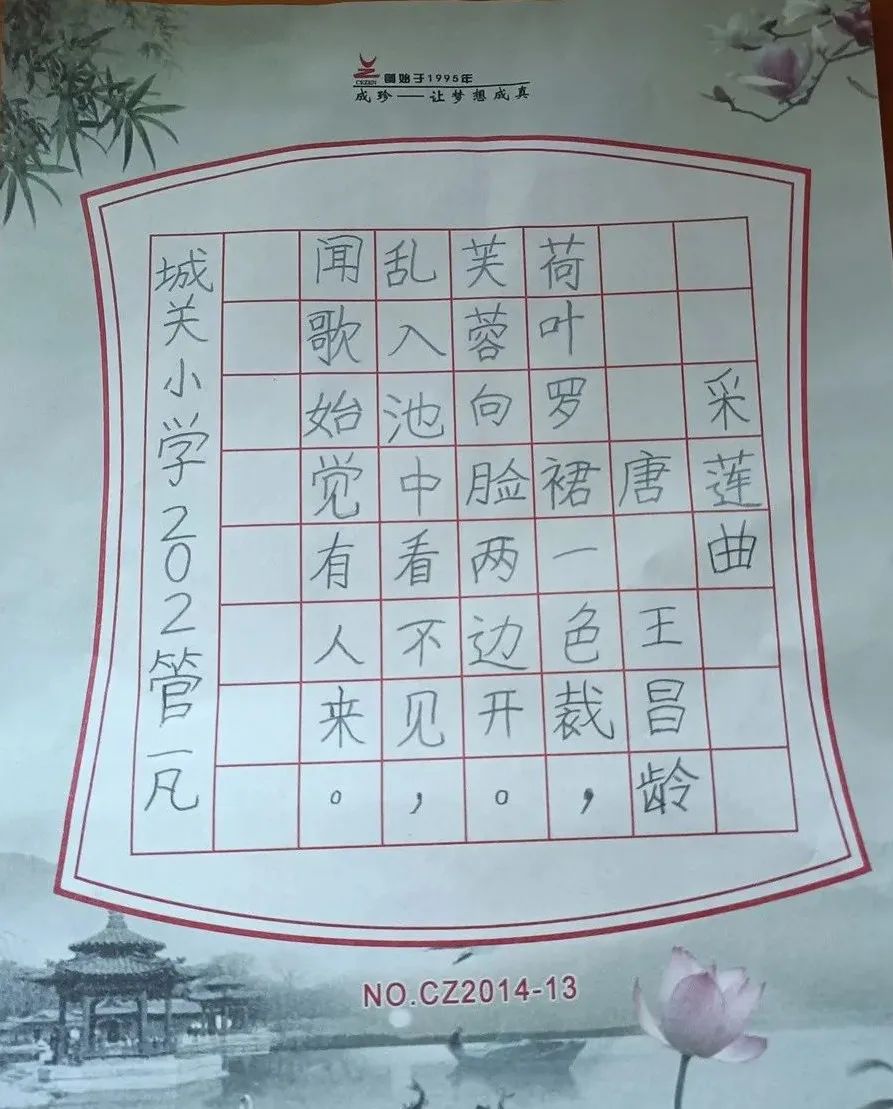 CEZEN
创始于1995年
成珍——让梦想成真
采莲曲
唐 王昌龄
荷叶罗裙一色裁，
芙蓉向脸两边开。
乱入池中看不见，
闻歌始觉有人来。
城关小学202管一凡
NO.CZ2014-13